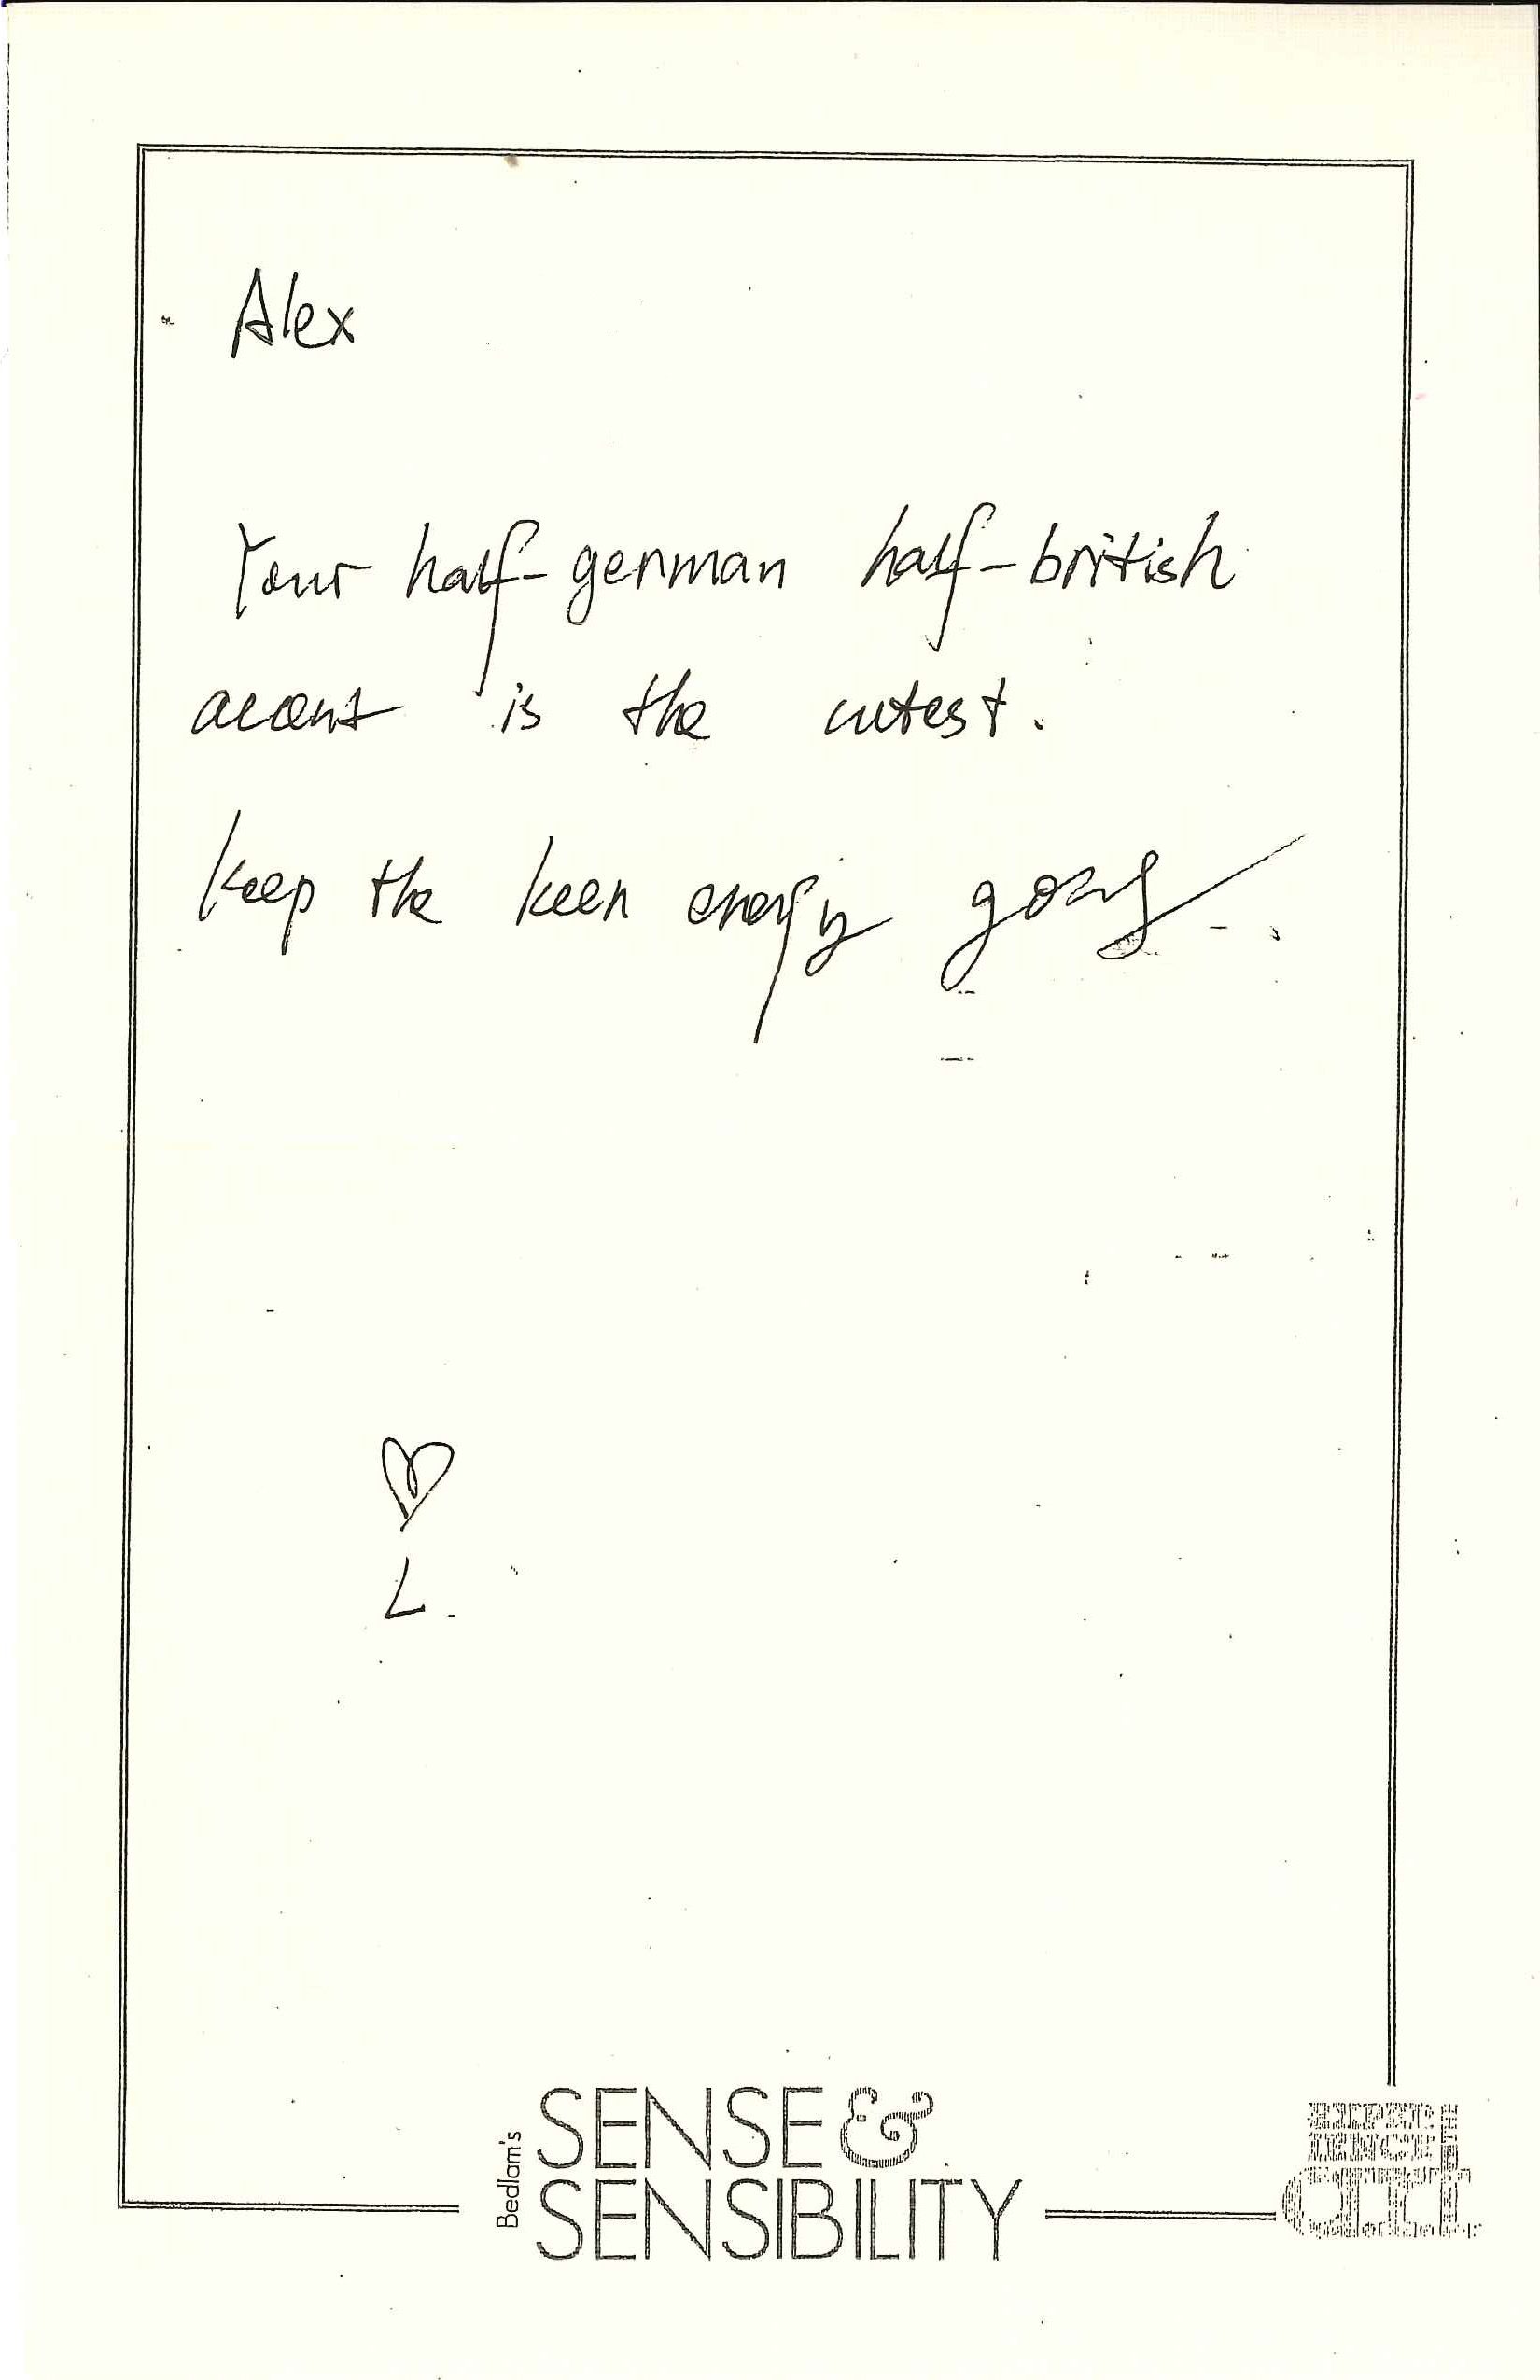 Alex
Your half-german half-british
accent is the cutest.
Keep the keen energy going
L.
Bedlam's
SENSE &
SENSIBILITY
EXPER
IENCE THE